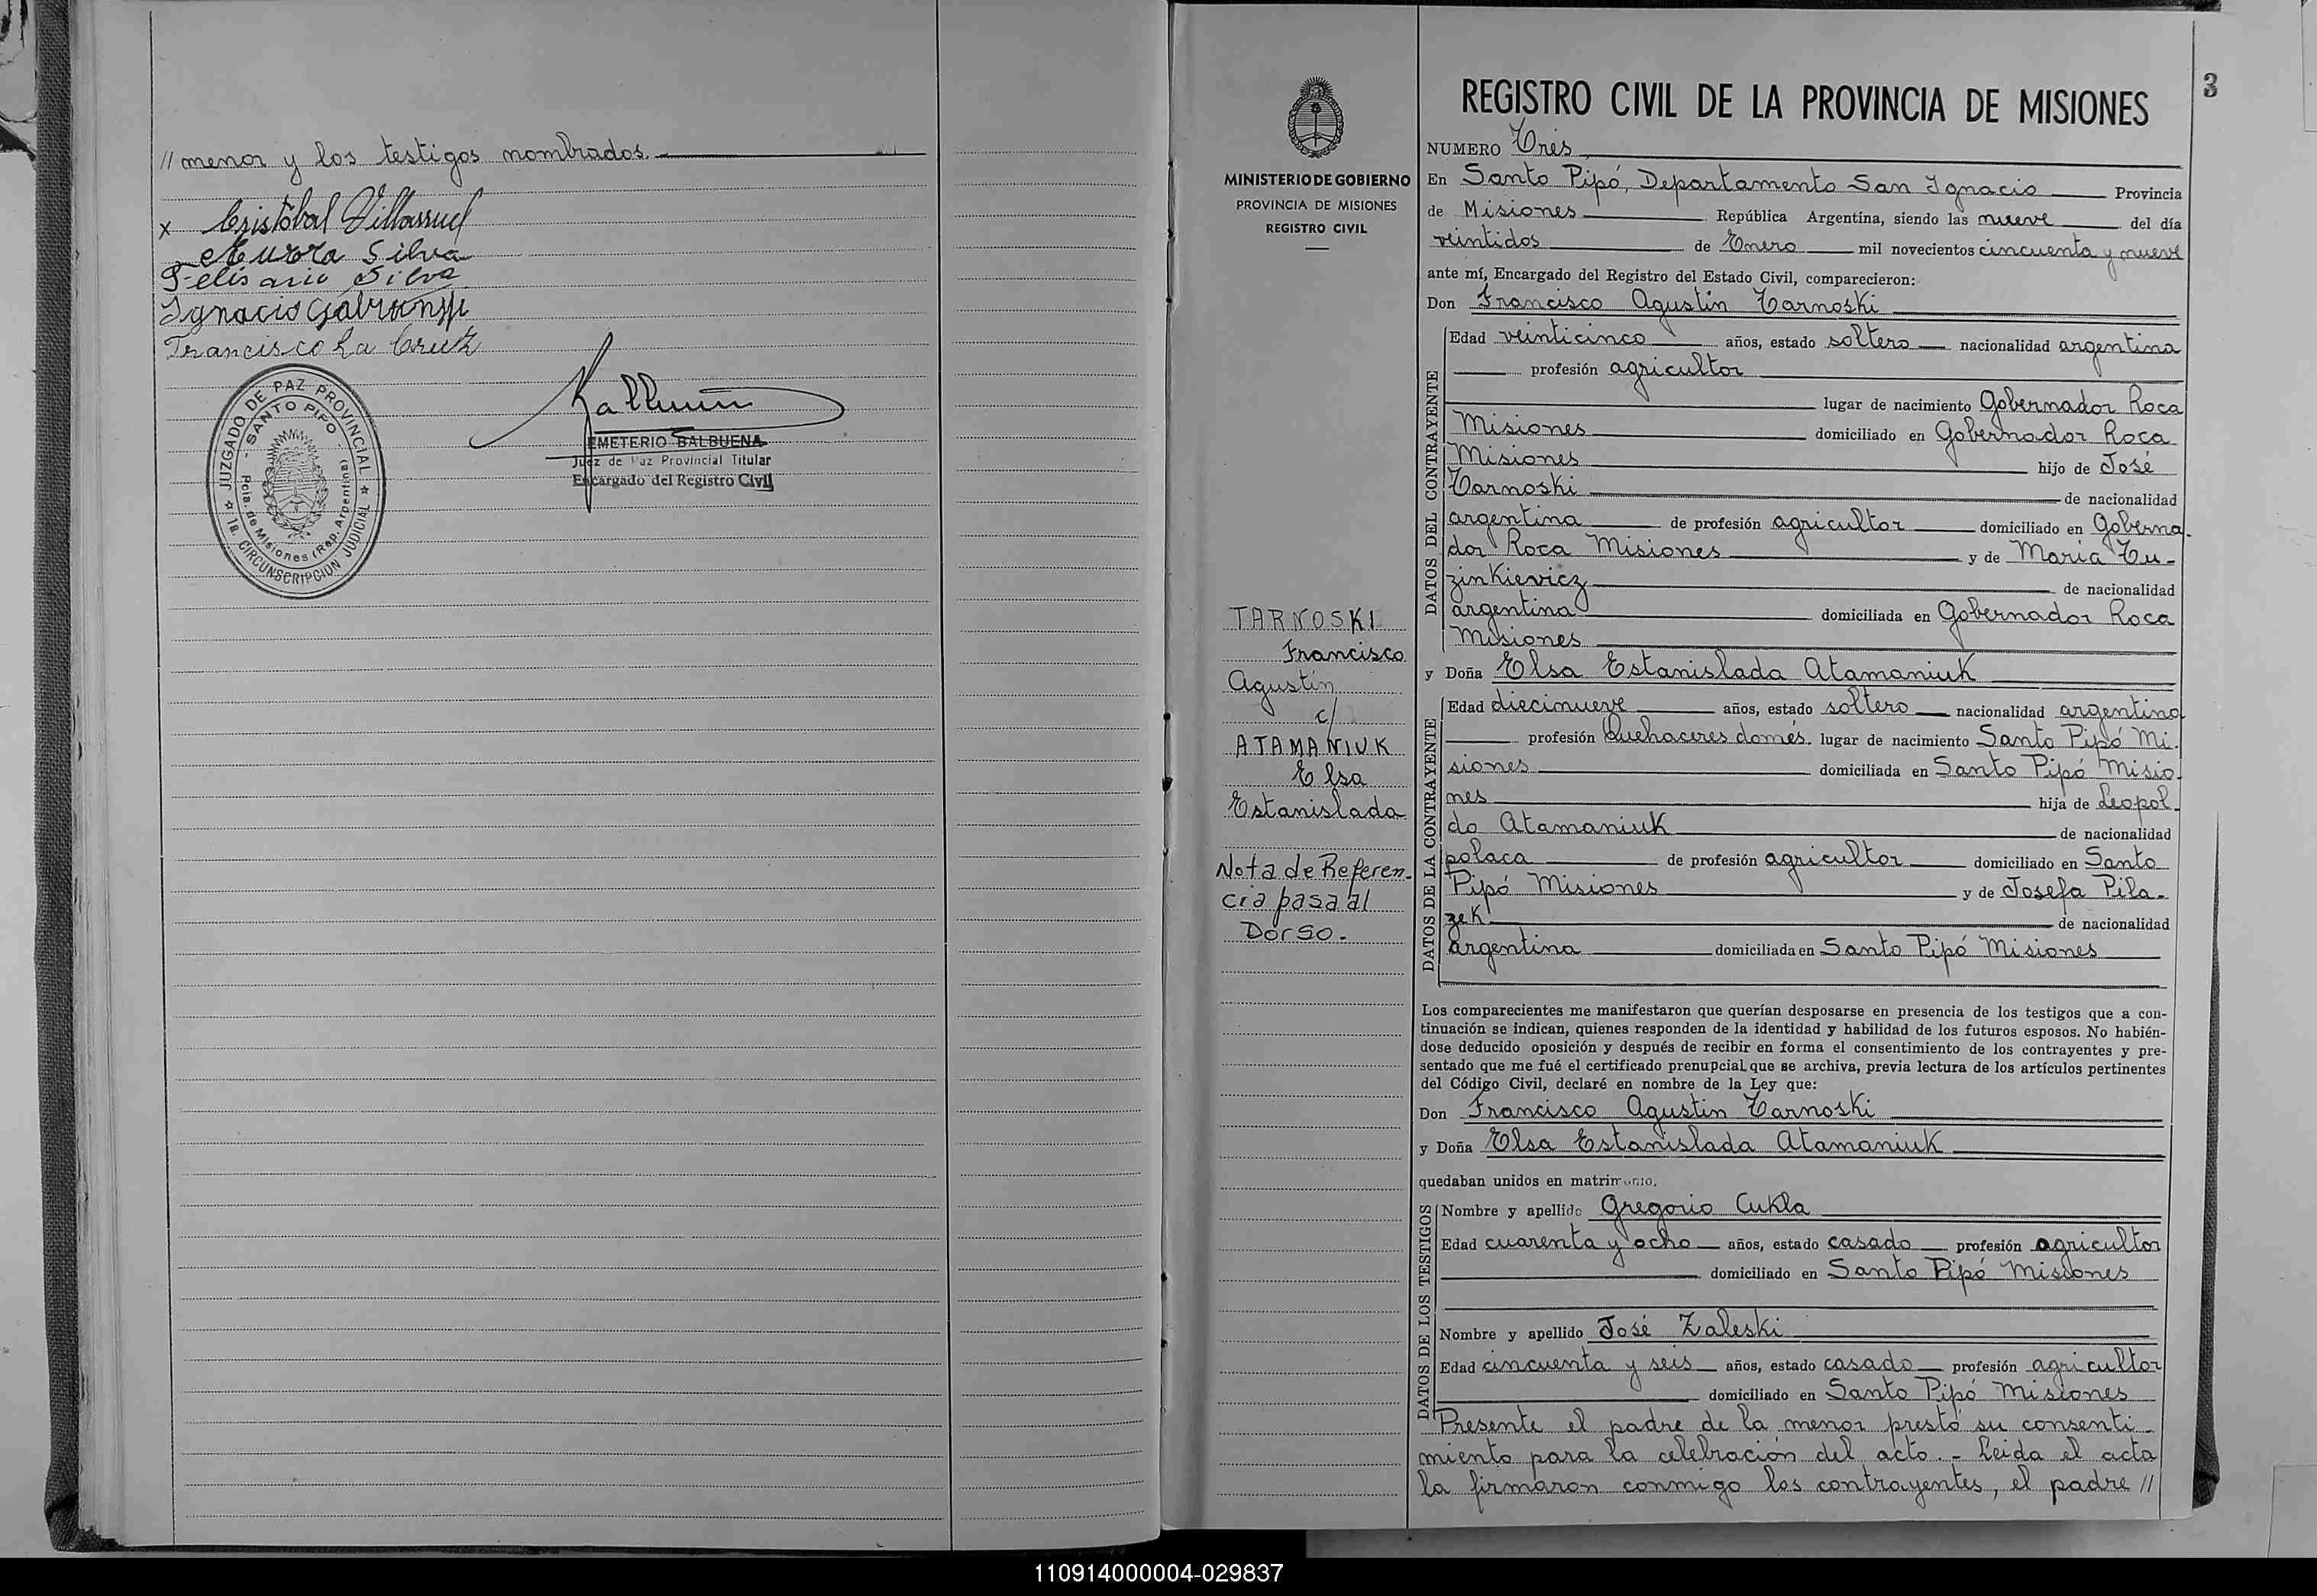 // menor y los testigos nombrados.
x Cristóbal Villarruel
Aurora Silva
Felisario Silva
Ignacio
Francisco La Cruz
JUZGADO DE PAZ PROVINCIAL
- SANTO PIPO -
Pcia. de Misiones (Rep. Argentina)
1a. CIRCUNSCRIPCION JUDICIAL
EMETERIO BALBUENA
Juez de Paz Provincial Titular
Encargado del Registro Civil
3
MINISTERIO DE GOBIERNO
PROVINCIA DE MISIONES
REGISTRO CIVIL
TARNOSKI
Francisco
Agustín
c/
ATAMANIUK
Elsa
Estanislada
Nota de Referen-
cia pasa al
Dorso.-
REGISTRO CIVIL DE LA PROVINCIA DE MISIONES
NUMERO Tres
En Santo Pipó, Departamento San Ignacio Provincia
de Misiones República Argentina, siendo las nueve del día
veintidos de Enero mil novecientos cincuenta y nueve
ante mí, Encargado del Registro del Estado Civil, comparecieron:
Don Francisco Agustin Tarnoski
DATOS DEL CONTRAYENTE
Edad veinticinco años, estado soltero nacionalidad argentina
profesión agricultor
lugar de nacimiento Gobernador Roca
Misiones domiciliado en Gobernador Roca
Misiones hijo de José
Tarnoski de nacionalidad
argentina de profesión agricultor domiciliado en Goberna-
dor Roca Misiones y de María Tu-
zinkievicz de nacionalidad
argentina domiciliada en Gobernador Roca
Misiones
y Doña Elsa Estanislada Atamaniuk
DATOS DE LA CONTRAYENTE
Edad diecinueve años, estado soltero nacionalidad argentina
profesión Quehaceres domés. lugar de nacimiento Santo Pipó Mi-
siones domiciliada en Santo Pipó Misio-
nes hija de Leopol-
do Atamaniuk de nacionalidad
polaca de profesión agricultor domiciliado en Santo
Pipó Misiones y de Josefa Pila-
zek de nacionalidad
argentina domiciliada en Santo Pipó Misiones
Los comparecientes me manifestaron que querían desposarse en presencia de los testigos que a con-
tinuación se indican, quienes responden de la identidad y habilidad de los futuros esposos. No habién-
dose deducido oposición y después de recibir en forma el consentimiento de los contrayentes y pre-
sentado que me fué el certificado prenupcial que se archiva, previa lectura de los artículos pertinentes
del Código Civil, declaré en nombre de la Ley que:
Don Francisco Agustin Tarnoski
y Doña Elsa Estanislada Atamaniuk
quedaban unidos en matrimonio.
DATOS DE LOS TESTIGOS
Nombre y apellido Gregorio Cukla
Edad cuarenta y ocho años, estado casado profesión agricultor
domiciliado en Santo Pipó Misiones
Nombre y apellido José Zaleski
Edad cincuenta y seis años, estado casado profesión agricultor
domiciliado en Santo Pipó Misiones
Presente el padre de la menor prestó su consenti-
miento para la celebración del acto.- Leida el acta
la firmaron conmigo los contrayentes, el padre //
110914000004-029837